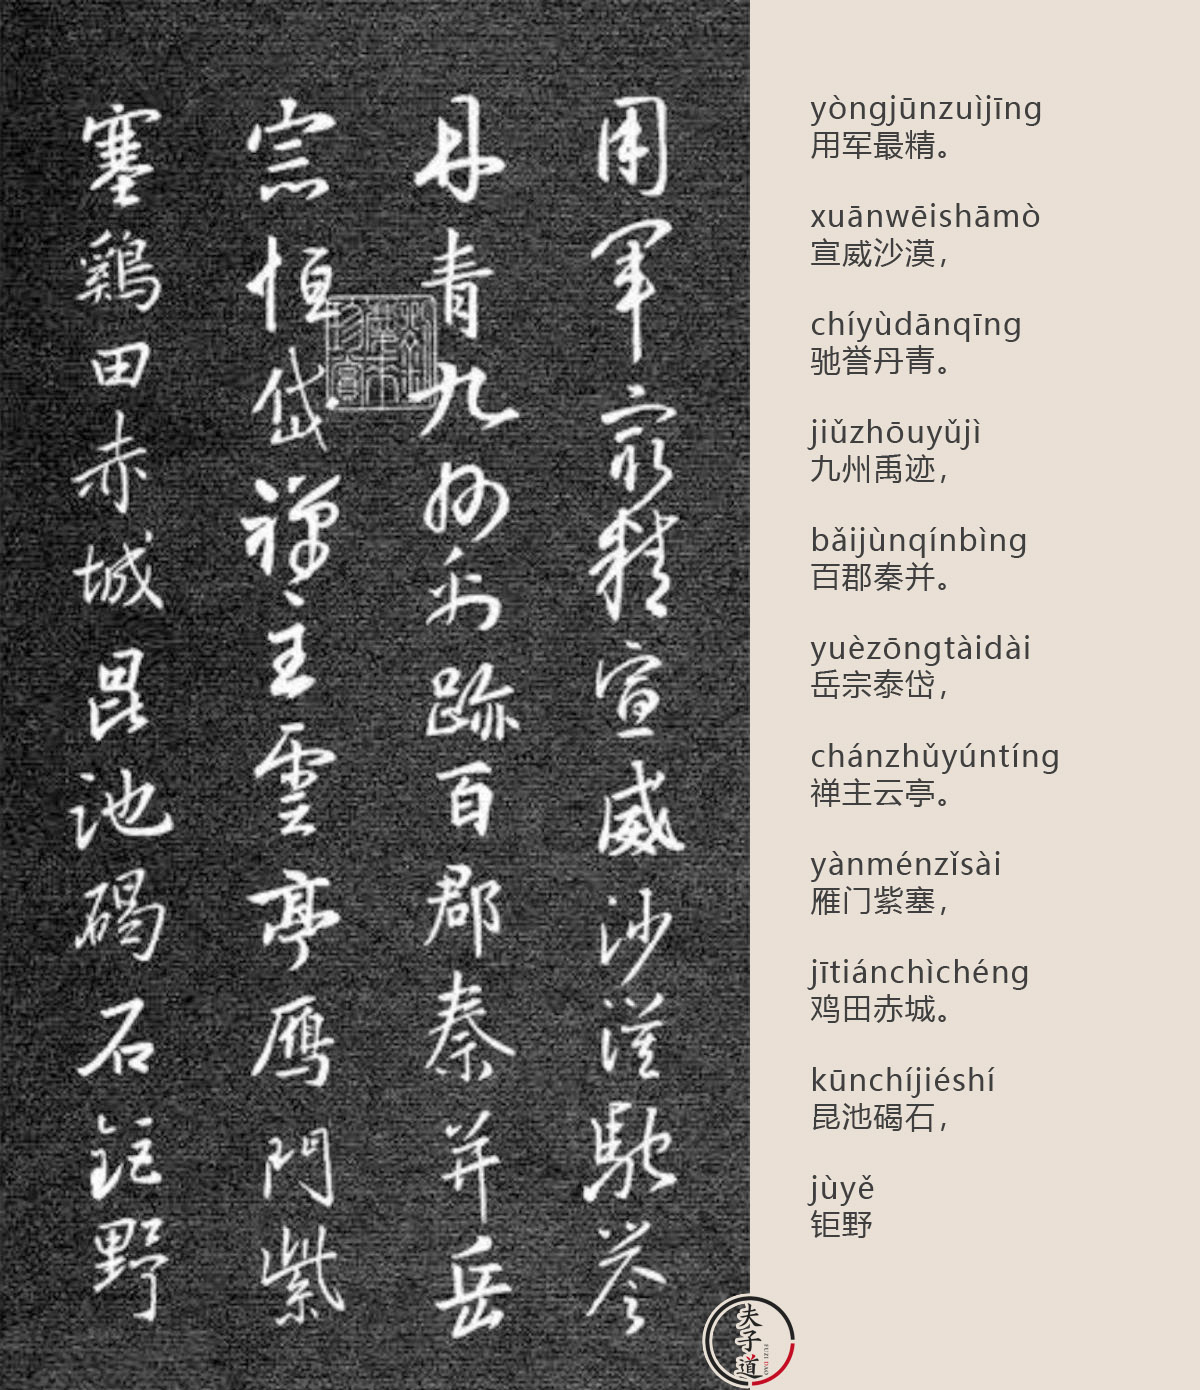 用軍最精宣威沙漠馳譽
丹青九州禹跡百郡秦并岳
宗恒岱禪主雲亭鴈門紫
塞鷄田赤城昆池碣石鉅野
yòngjūnzuìjīng
用军最精。
xuānwēishāmò
宣威沙漠，
chíyùdānqīng
驰誉丹青。
jiǔzhōuyǔjì
九州禹迹，
bǎijùnqínbìng
百郡秦并。
yuèzōngtàidài
岳宗泰岱，
chánzhǔyúntíng
禅主云亭。
yànménzǐsài
雁门紫塞，
jītiánchìchéng
鸡田赤城。
kūnchíjiéshí
昆池碣石，
jùyě
钜野
夫子道